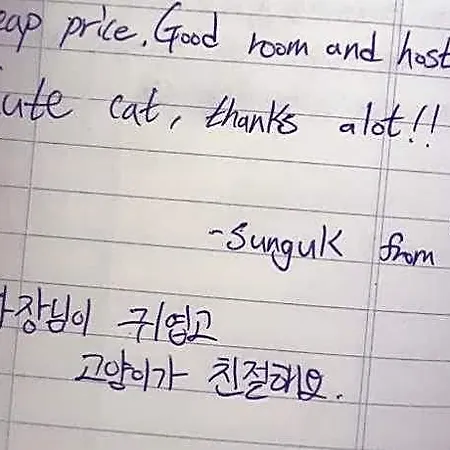 eap price. Good room and host
ute cat, thanks alot!!
-Sunguk from
장님이 귀엽고
고양이가 친절해요.